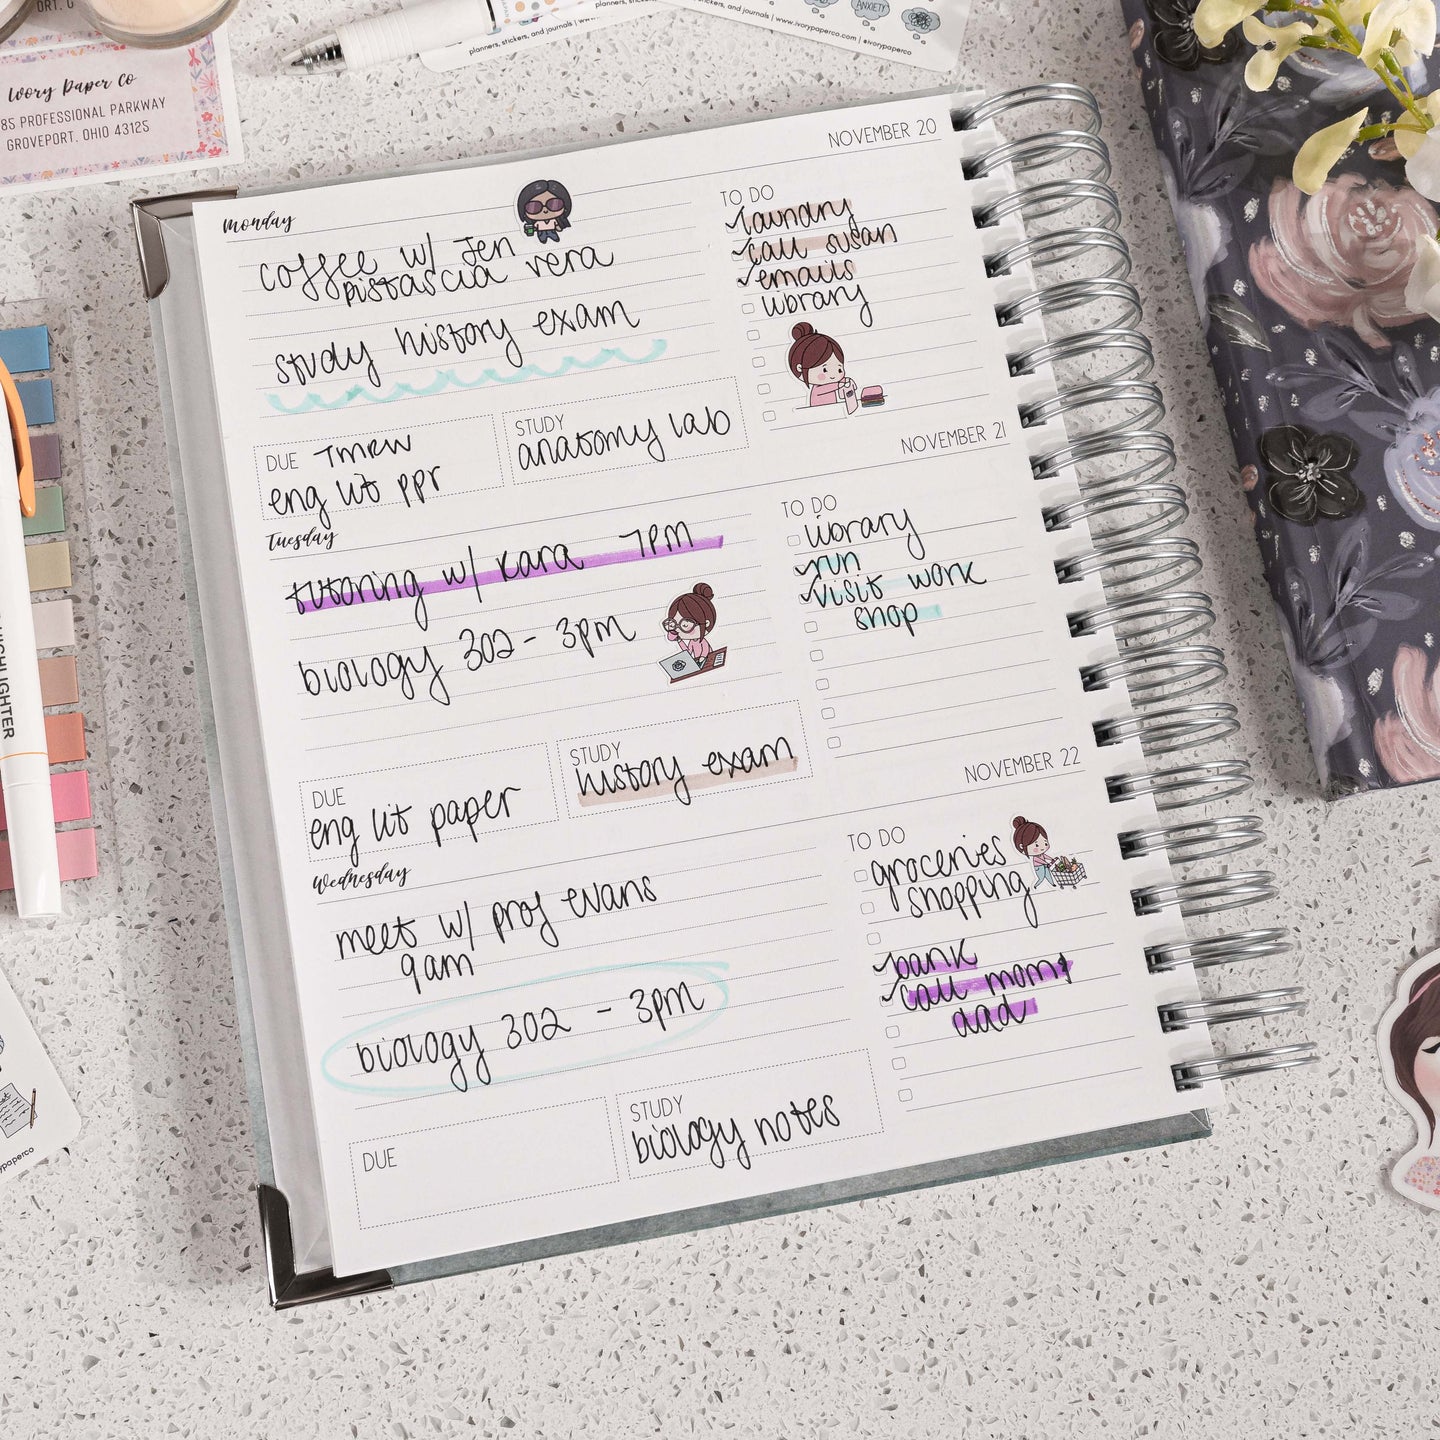 ORT. O
Ivory Paper Co
85 PROFESSIONAL PARKWAY
GROVEPORT, OHIO 43125
planners, stickers, and journals | www.ivorypaperco.com |
planners, stickers, and journals | www.ivorypaperco.com | @ivorypaperco
ANXIETY
Monday
NOVEMBER 20
coffee w/ Jen
pistascia vera
study history exam
DUE TMRW
eng lit ppr
STUDY
anatomy lab
TO DO
laundry
call susan
emails
library
Tuesday
NOVEMBER 21
tutoring w/ kara 7PM
biology 302 - 3pm
DUE
eng lit paper
STUDY
history exam
TO DO
library
run
visit work
shop
Wednesday
NOVEMBER 22
meet w/ prof evans
9am
biology 302 - 3pm
DUE
STUDY
biology notes
TO DO
groceries
shopping
bank
call mom +
dad
HIGHLIGHTER
ypaperco